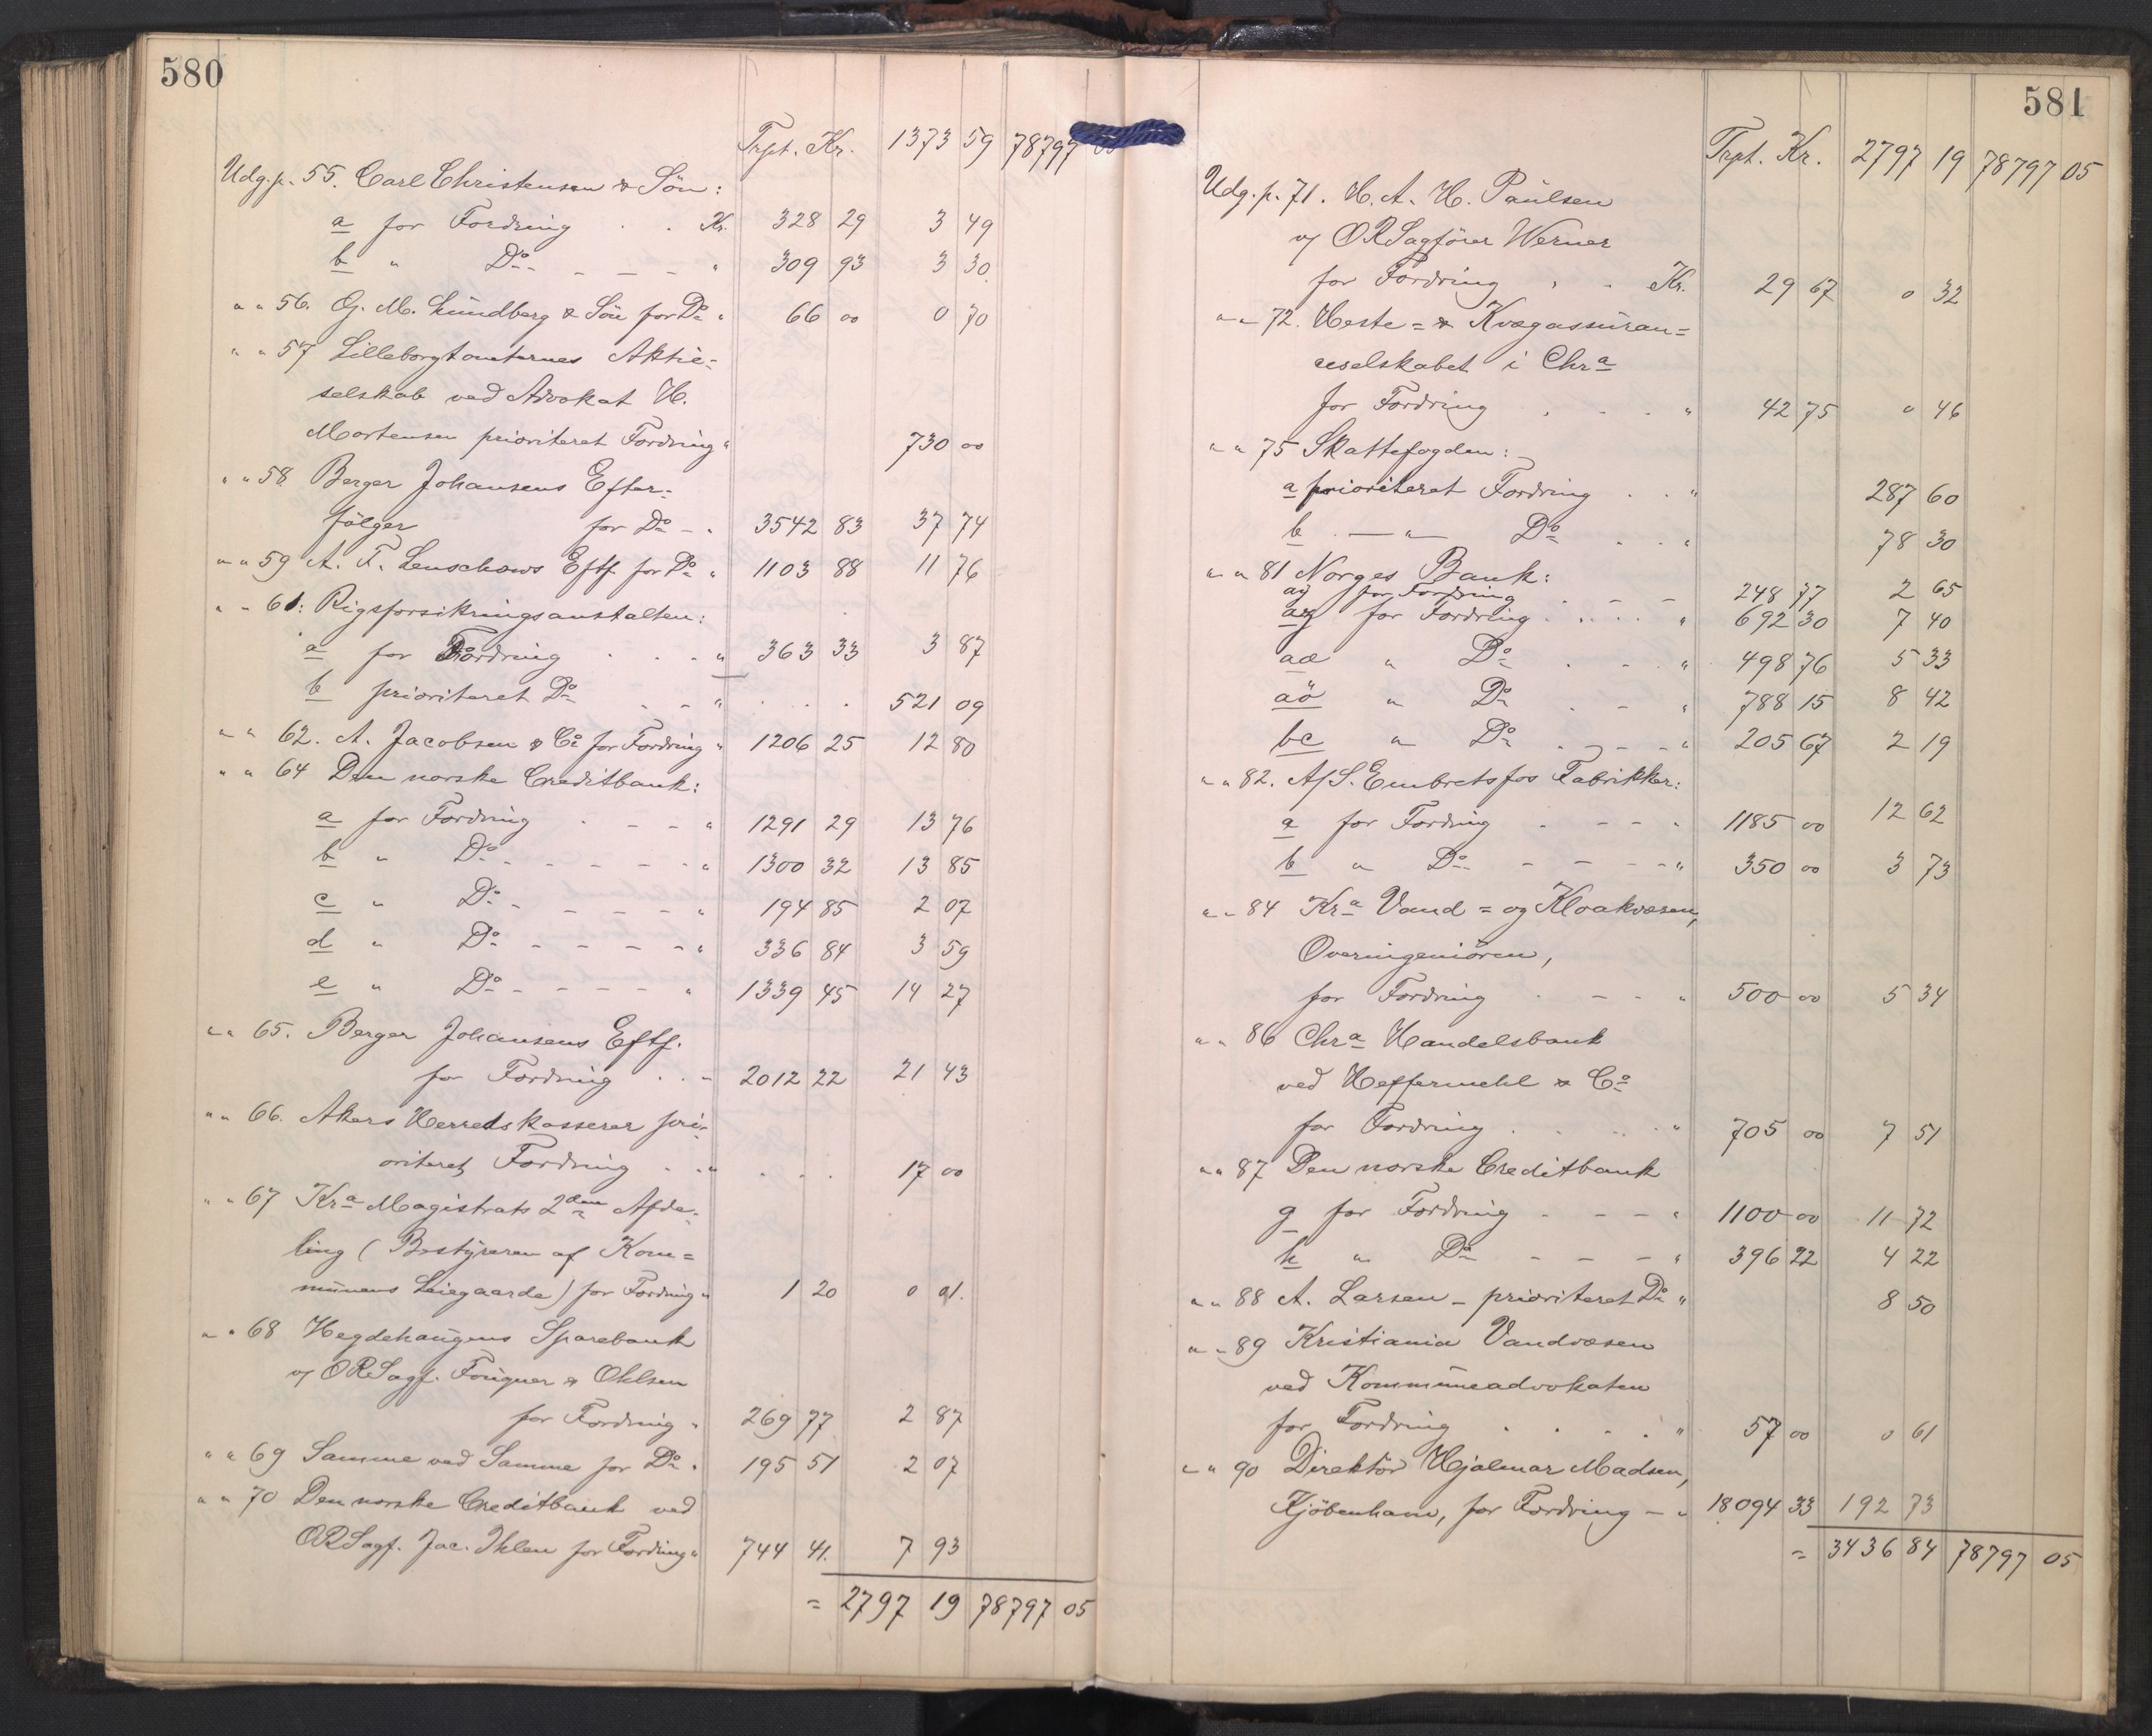 580
Trpt. Kr. 1373 59 78797
Udg. p. 55. Carl Christensen & Søn:
a for Fordring . . Kr. 328 29 3 49
b " Do - - - - " 309 93 3 30
" " 56. G. M. Lundberg & Søn for Do " 66 00 0 70
" " 57 Lilleborgtomternes Aktie-
selskab ved Advokat H.
Mortensen prioriteret Fordring " 730 00
" " 58 Berger Johansens Efter-
følger for Do - " 3542 83 37 74
" " 59 A. F. Lenschows Eftf. for Do " 1103 88 11 76
" " 61: Rigsforsikringsanstalten:
a for Fordring . . . " 363 33 3 87
b prioriteret Do - - " . . . 521 09
" " 62. A. Jacobsen & Co for Fordring " 1206 25 12 80
" " 64 Den norske Creditbank:
a for Fordring . - - " 1291 29 13 76
b " Do - - - - - " 1300 32 13 85
c " Do - - - - " 194 85 2 07
d " Do - - - - " 336 84 3 59
e " Do - - - - " 1339 45 14 27
" " 65. Berger Johansens Eftf.
for Fordring . . - 2012 22 21 43
" " 66. Akers Herredskasserer pri-
oriteret Fordring . . " . . . 17 00
" " 67 Kra Magistrats 2den Afde-
ling (Bestyreren af Kom=
munens Leiegaarde) for Fordring " 1 20 0 01.
" " 68 Hegdehaugens Sparebank
v/ ORSagf. Fougner & Ohlsen
for Fordring " 269 77 2 87
" " 69 Samme ved Samme for Do " 195 51 2 07
" " 70 Den norske Creditbank ved
ORSagf. Jac. Ihlen for Fordring " 744 41. 7 93
= 2797 19 78797 05
581
Trpt. Kr. 2797 19 78797 05
Udg. p. 71. H. A. H. Paulsen
v/ ORSagfører Werner
for Fordring . . Kr. 29 67 0 32
" " 72. Heste= & Kvægassuran=
ceselskabet i Chra
for Fordring . . . " 42 75 0 46
" " 75 Skattefogden:
a prioriteret Fordring . . " 287 60
b — " — Do . . " 78 30
" " 81 Norges Bank:
for Fordring . - - 248 77 2 65
for Fordring . . . . " 692 30 7 40
aæ " Do . - . " 498 76 5 33
aö " Do . - " 788 15 8 42
bc " Do . - - - " 205 67 2 19
" " 82. A/S. Embretsfos Fabrikker:
a for Fordring . - - - " 1185 00 12 62
b " Do - - - - " 350 00 3 73
" " 84 Kra Vand= og Kloakvæsen,
Overingeniøren,
for Fordring . - - " 500 00 5 34
" " 86 Chra Handelsbank
ved Heffermehl & Co
for Fordring . . . . " 705 00 7 51
" " 87 Den norske Creditbank
g for Fordring . - - " 1100 00 11 72
h " Do - - - " 396 22 4 22
" " 88 A. Larsen - prioriteret Do " 8 50
" " 89 Kristiania Vandvæsen
ved Kommuneadvokaten
for Fordring . . . . " 57 00 0 61
" " 90 Direktør Hjalmar Madsen,
Kjöbenhavn, for Fordring - " 18094 33 192 73
= 3436 84 78797 05